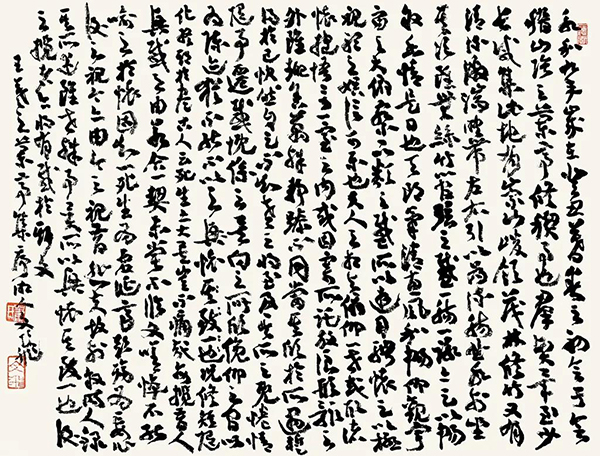 永和九年歲在癸丑暮春之初會于會
稽山陰之蘭亭修禊事也群賢畢至少
長咸集此地有崇山峻領茂林修竹又有
清流激湍映帶左右引以為流觴曲水列坐
其次雖無絲竹管弦之盛一觴一詠亦足以暢
敘幽情是日也天朗氣清惠風和暢仰觀宇
宙之大俯察品類之盛所以遊目騁懷足以極
視聽之娛信可樂也夫人之相與俯仰一世或取諸
懷抱悟言一室之內或因寄所託放浪形骸之
外雖趣舍萬殊靜躁不同當其欣於所遇暫
得於己快然自足不知老之將至及其所之既倦情
隨事遷感慨係之矣向之所欣俛仰之間以
為陳迹猶不能不以之興懷況修短隨
化終期於盡古人云死生亦大矣豈不痛哉每攬昔人
興感之由若合一契未嘗不臨文嗟悼不能
喻之於懷固知一死生為虛誕齊彭殤為妄作
後之視今亦由今之視昔悲夫故列敘時人錄
其所述雖世殊事異所以興懷其致一也後
之攬者亦將有感於斯文
王羲之蘭亭集序